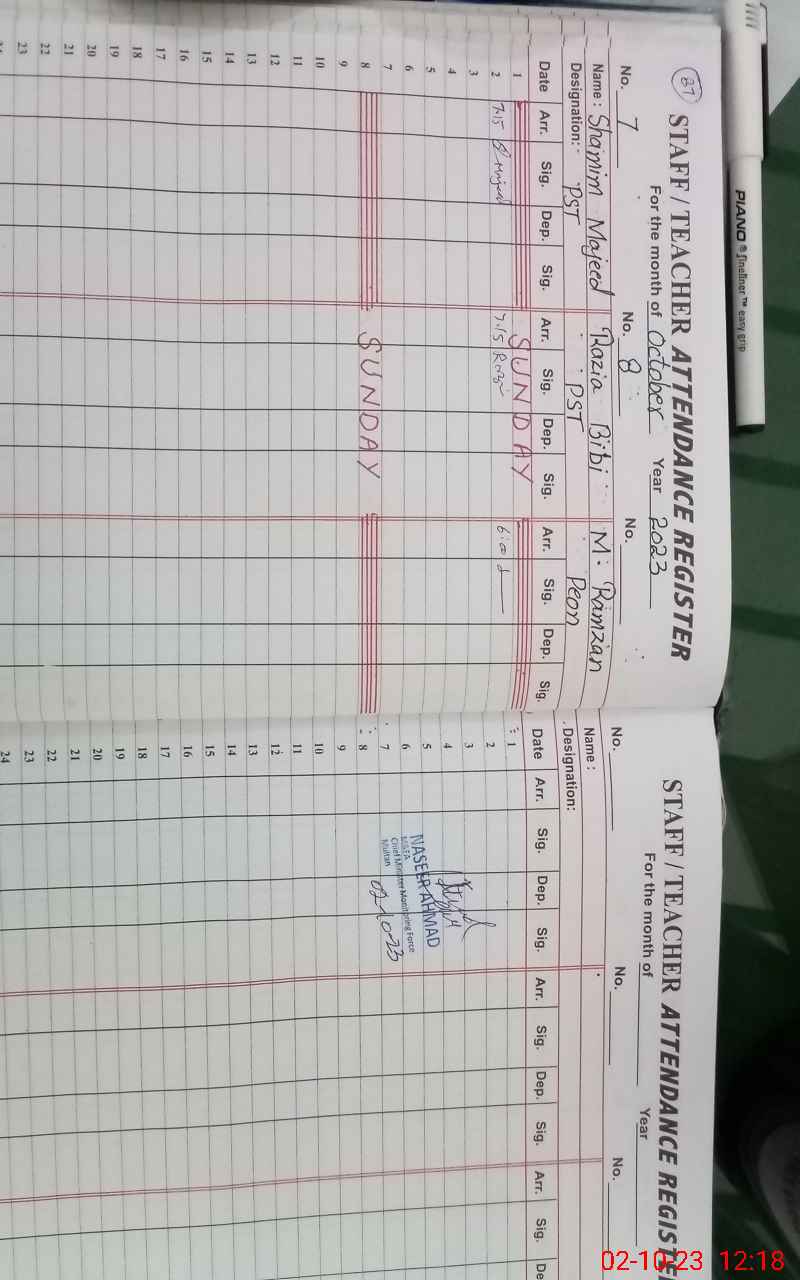 87
STAFF / TEACHER ATTENDANCE REGISTER
For the month of October Year 2023
No. 7 No. 8 No.
Name : Shamim Majeed Razia Bibi M: Ramzan
Designation: PST PST Peon
Date Arr. Sig. Dep. Sig. Arr. Sig. Dep. Sig. Arr. Sig. Dep. Sig.
1 SUNDAY
2 7:15 7:15
3
4
5
6
7
8 SUNDAY
9
10
11
12
13
14
15
16
17
18
19
20
21
22
23
STAFF / TEACHER ATTENDANCE REGISTE
For the month of Year
No. No. No.
Name :
Designation:
Date Arr. Sig. Dep. Sig. Arr. Sig. Dep. Sig. Arr. Sig. De
1
2
3
4
5
6
7
8
9
10
11
12
13
14
15
16
17
18
19
20
21
22
23
24
NASEER AHMAD
Chief Minister Monitoring Force
Multan
02-10-23
PIANO fineliner ™ easy grip
02-10-23 12:18